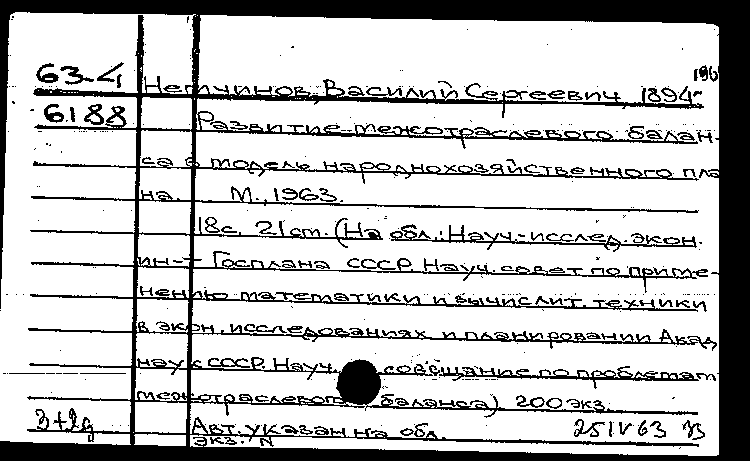 196
63-4 Немчинов, Василий Сергеевич, 1894-
6188 Развитие межотраслевого балан-
са в модель народнохозяйственного пла
на. М., 1963.
18с. 21 ст. (На обл.: Науч.-исслед. экон.
ин-т Госплана СССР. Науч. совет по приме-
нению математики и вычислит. техники
в экон. исследованиях и планировании Акад.
наук СССР. Науч. совещание по проблемам
межотраслевого баланса) 200 экз.
Авт. указан на обл. 25 IV 63
экз. N